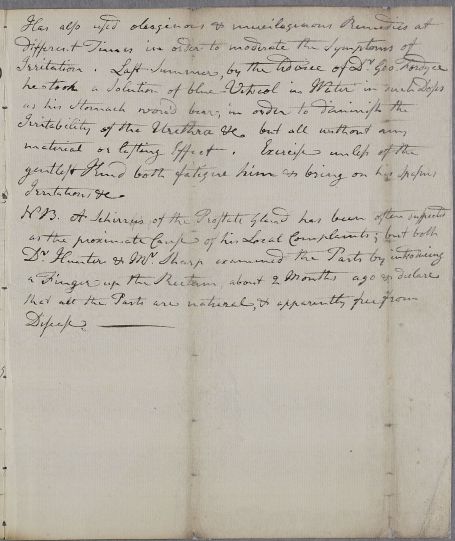 Has also used oleaginous & mucilaginous Remedies at
Different Times in order to moderate the Symptoms of
Irritation. Last Summer, by the Advice of Dr Geo Fordyce
he took a Solution of blue Vitriol in Water in such Doses
as his Stomach would bear, in order to diminish the
Irritability of the Urethra &c but all without any
material or lasting Effect. Exercise unless of the
gentlest Kind both fatigue him & bring on his spasms
Irritations &c
N.B. A Schirrus of the Prostate Gland has been often suspected
as the proximate Cause of his Local Complaints; but both
Dr Hunter & Mr Sharp examined the Parts by introducing
a Finger up the Rectum, about 2 Months ago & declare
that all the Parts are natural, & apparently free from
Disease.